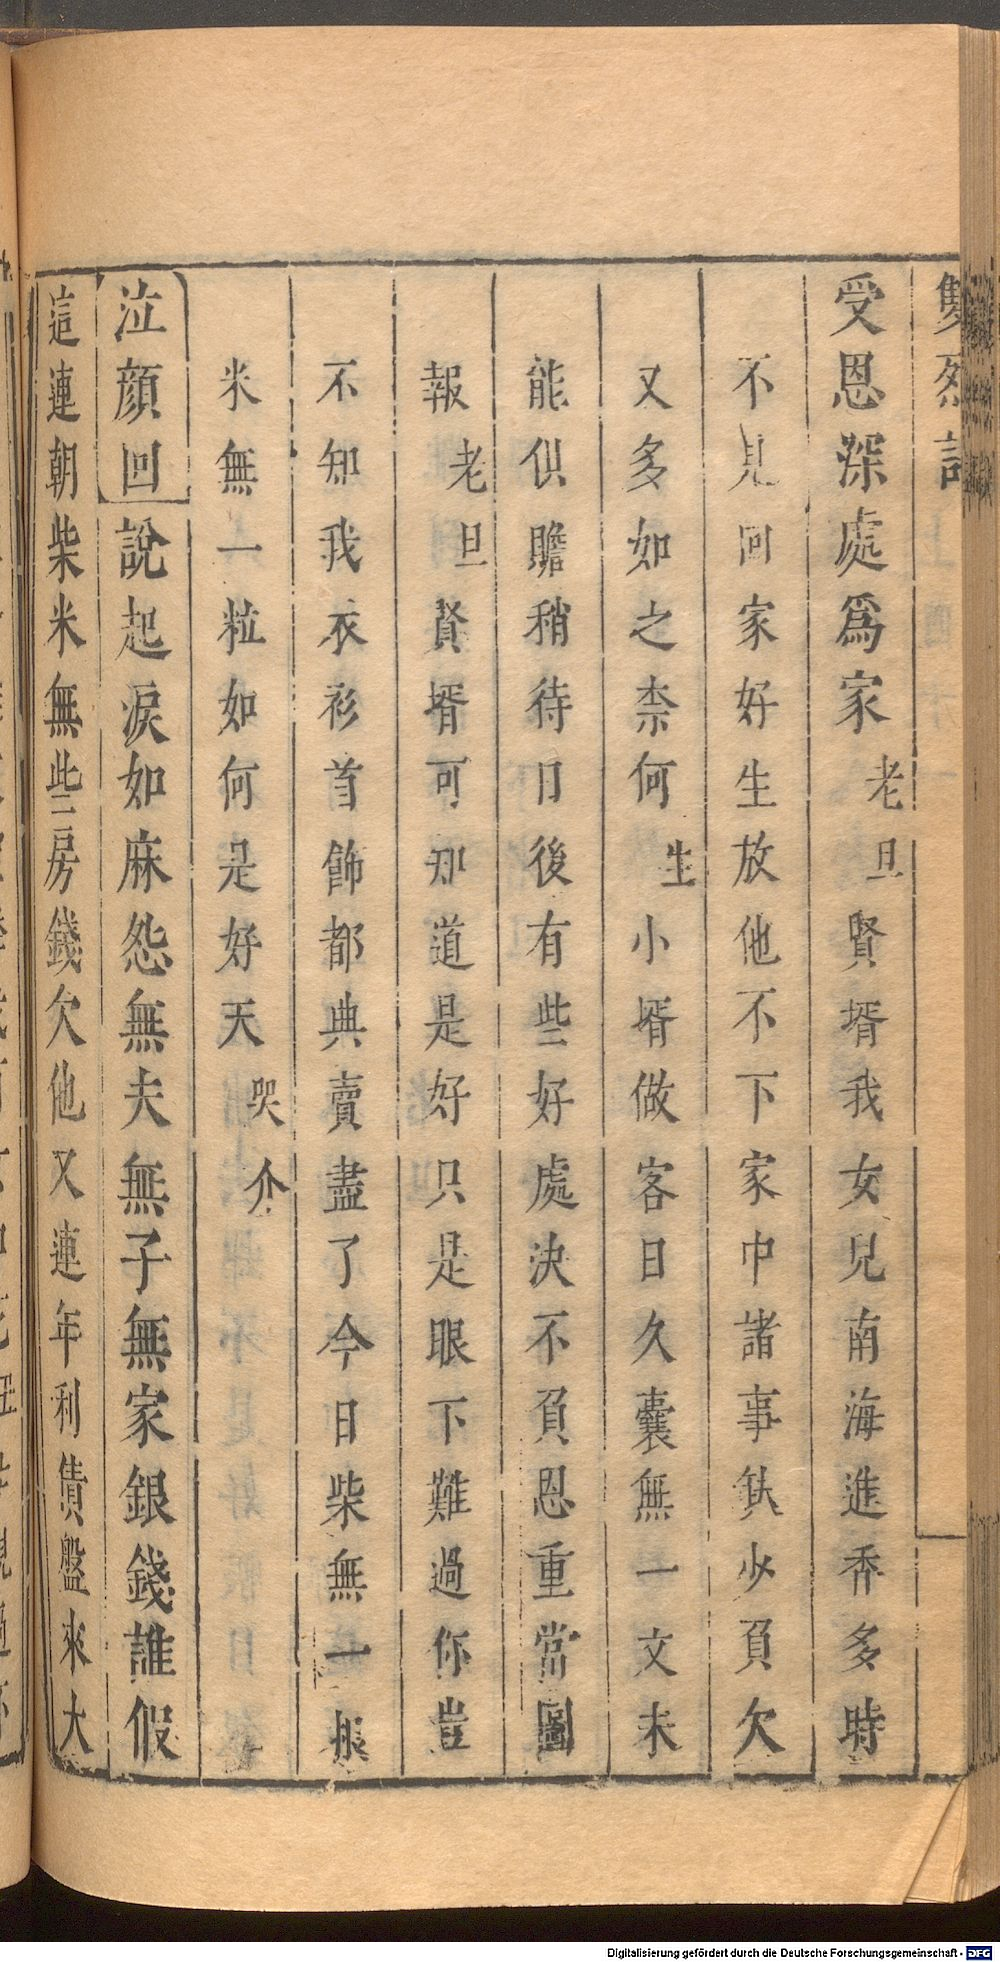 雙烈記
受恩深處爲家老旦賢壻我女兒南海進香多時
不見回家好生放他不下家中諸事缺少負欠
又多如之柰何生小壻做客日久囊無一文未
能供贍稍待日後有些好處決不負恩重當圖
報老旦賢壻可知道是好只是眼下難過你豈
不知我衣衫首飾都典賣盡了今日柴無一根
米無一粒如何是好天哭介
泣顔回說起淚如麻怨無夫無子無家銀錢誰假
這連朝柴米無些房錢欠他又連年利債盤來大
Digitalisierung gefördert durch die Deutsche Forschungsgemeinschaft - DFG